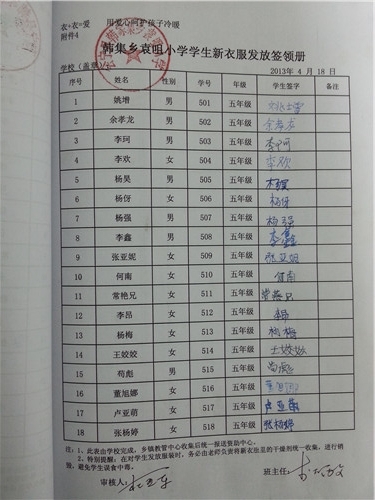 衣+衣=爱 用爱心呵护孩子冷暖
附件4
韩集乡袁咀小学学生新衣服发放签领册
学校（盖章） 2013年 4 月 18 日
序号 姓名 性别 学号 年级 学生签字 备注
1 姚增 男 501 五年级
2 余孝龙 男 502 五年级 余孝龙
3 李珂 男 503 五年级 李珂
4 李欢 女 504 五年级 李欢
5 杨昊 男 505 五年级 杨昊
6 杨伢 女 506 五年级 杨伢
7 杨强 男 507 五年级 杨强
8 李鑫 男 508 五年级 李鑫
9 张亚妮 女 509 五年级 张亚妮
10 何南 女 510 五年级 何南
11 常艳兄 女 511 五年级
12 李昂 女 512 五年级 李昂
13 杨梅 女 513 五年级 杨梅
14 王姣姣 女 514 五年级 王姣姣
15 苟彪 男 515 五年级 苟彪
16 董旭娜 女 516 五年级 董旭娜
17 卢亚萌 女 517 五年级 卢亚萌
18 张杨婷 女 518 五年级 张杨婷
注：1、此表由学校完成，乡镇教管中心收集后统一报送资助中心。
2、特别提醒：在对学生发放服装时，务必由老师负责将新衣板里的干燥剂统一收集，进行销
毁，避免学生误食中毒。
审核人： 班主任：